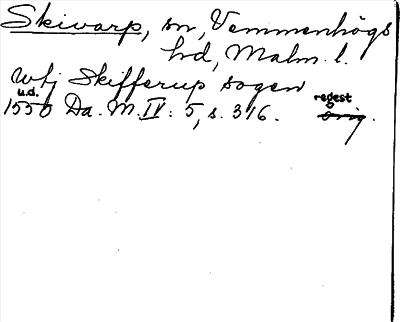 Skivarp, sn, Vemmenhögs
hd, Malm. l.
wtj Skifferup sogen
u.d. regest
1550 Da. M. IV: 5, s. 316. orig.